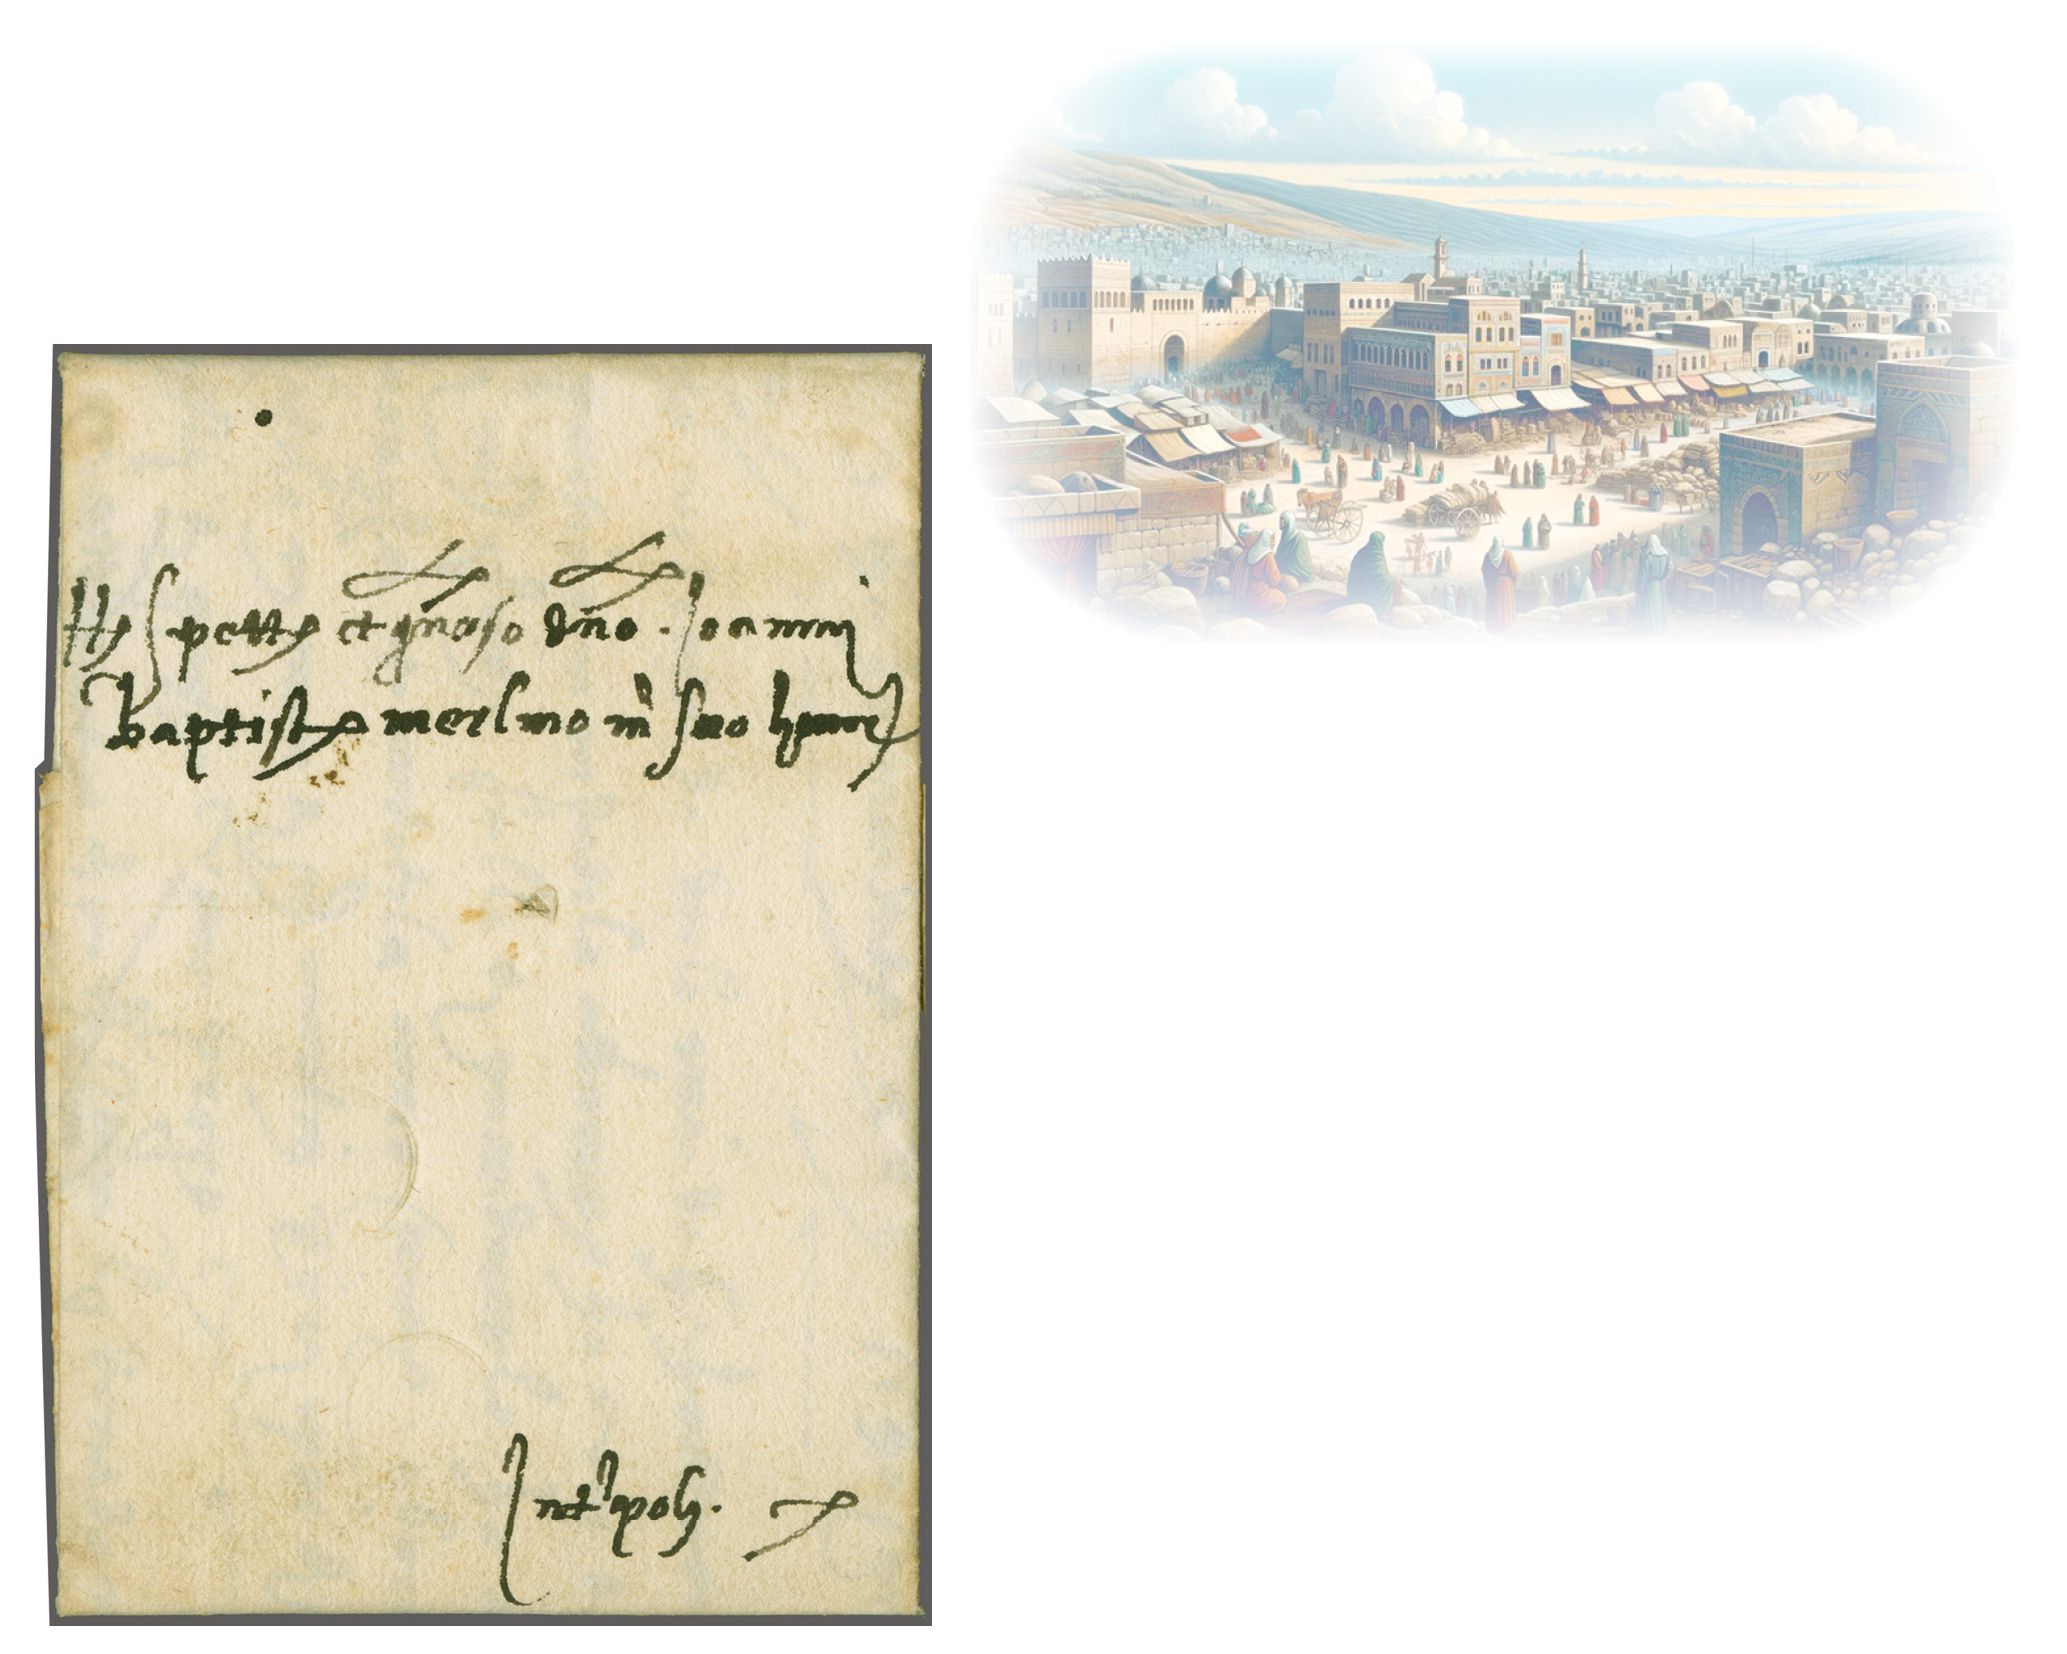 Spett et gnoso dno. Joanni
Baptist merlino m suo hon
In tripoli.